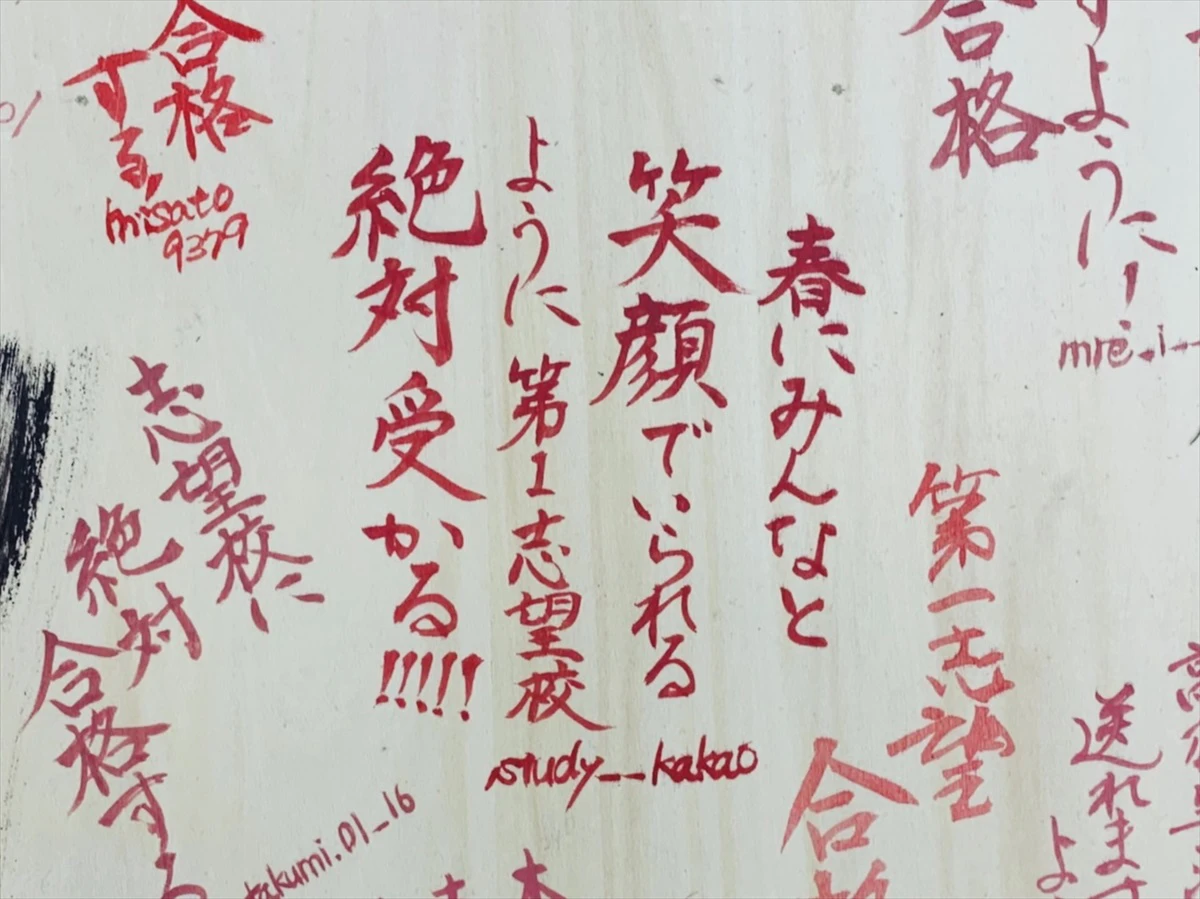 合格
すように!
mre.i
春にみんなと
笑顔でいられる
ように 第1志望校
絶対受かる!!!!!
study__kakao
合格
する,
misato
9379
志望校に
絶対
合格する
takumi.01_16
第一志望
合格
送れます
よ